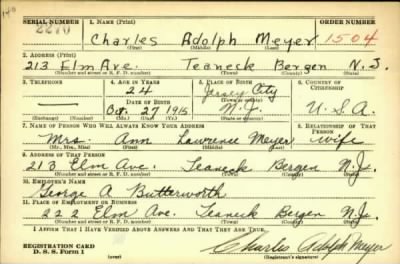 140
SERIAL NUMBER 1. NAME (Print) ORDER NUMBER
2210 Charles Adolph Meyer 1504
(First) (Middle) (Last)
2. ADDRESS (Print)
213 Elm Ave. Teaneck Bergen N.J.
(Number and street or R. F. D. number) (Town) (County) (State)
3. TELEPHONE 4. AGE IN YEARS 5. PLACE OF BIRTH 6. COUNTRY OF CITIZENSHIP
24 Jersey City
DATE OF BIRTH (Town or county)
— Oct. 27 1915 N.J. U.S.A.
(Exchange) (Number) (Mo.) (Day) (Yr.) (State or country)
7. NAME OF PERSON WHO WILL ALWAYS KNOW YOUR ADDRESS 8. RELATIONSHIP OF THAT PERSON
Mrs. Ann Lawrence Meyer wife
(Mr., Mrs., Miss) (First) (Middle) (Last)
9. ADDRESS OF THAT PERSON
213 Elm Ave Teaneck Bergen N.J.
(Number and street or R. F. D. number) (Town) (County) (State)
10. EMPLOYER'S NAME
George A Butterworth
11. PLACE OF EMPLOYMENT OR BUSINESS
222 Elm Ave. Teaneck Bergen N.J.
(Number and street or R. F. D. number) (Town) (County) (State)
I AFFIRM THAT I HAVE VERIFIED ABOVE ANSWERS AND THAT THEY ARE TRUE.
REGISTRATION CARD
D. S. S. Form 1 (over) Charles Adolph Meyer
(Registrant's signature)